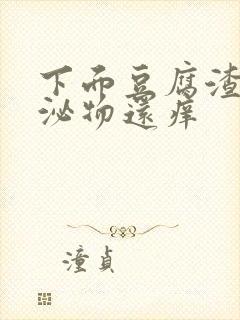 下而豆腐渣
泌物還痒
潼貞